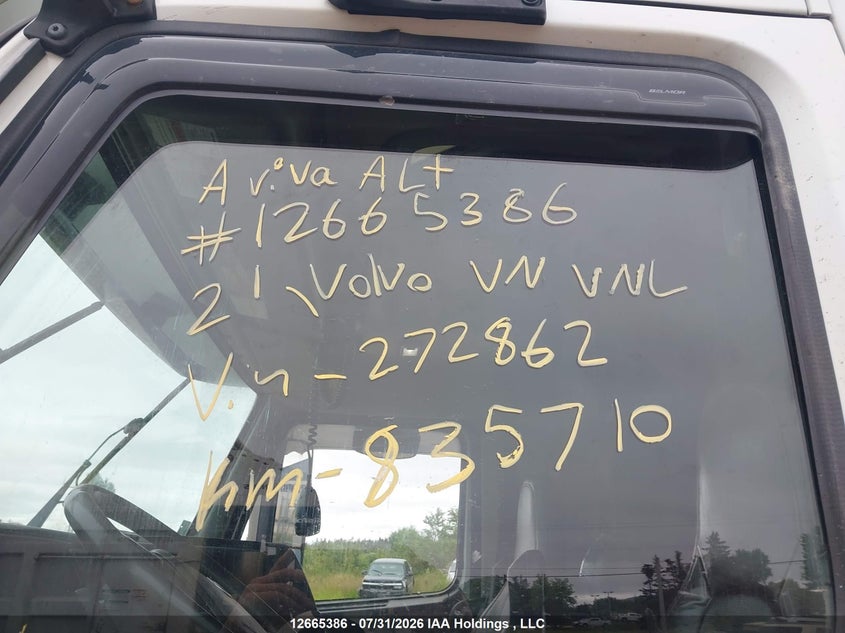 BELMOR
Aviva ALt
#12665386
21 Volvo VN VNL
Vin - 272862
km - 835710
12665386 - 07/31/2026 IAA Holdings , LLC